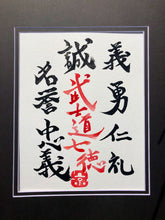 義勇仁礼
武士道七徳
誠
名誉忠義